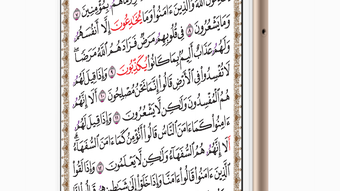 بِمُؤْمِنِينَ
يُخَٰدِعُونَ ٱللَّهَ وَٱلَّذِينَ ءَامَنُوا۟ وَمَا يُخَٰدِعُونَ إِلَّآ أَنفُسَهُمْ
وَمَا يَشْعُرُونَ فِي قُلُوبِهِم مَّرَضٌ فَزَادَهُمُ ٱللَّهُ مَرَضًا
وَلَهُمْ عَذَابٌ أَلِيمٌۢ بِمَا كَانُوا۟ يُكَذِّبُونَ وَإِذَا قِيلَ لَهُمْ
لَا تُفْسِدُوا۟ فِي ٱلْأَرْضِ قَالُوٓا۟ إِنَّمَا نَحْنُ مُصْلِحُونَ أَلَآ إِنَّهُمْ
هُمُ ٱلْمُفْسِدُونَ وَلَٰكِن لَّا يَشْعُرُونَ وَإِذَا قِيلَ لَهُمْ
ءَامِنُوا۟ كَمَآ ءَامَنَ ٱلنَّاسُ قَالُوٓا۟ أَنُؤْمِنُ كَمَآ ءَامَنَ ٱلسُّفَهَآءُ
أَلَآ إِنَّهُمْ هُمُ ٱلسُّفَهَآءُ وَلَٰكِن لَّا يَعْلَمُونَ وَإِذَا لَقُوا۟
ٱلَّذِينَ ءَامَنُوا۟ قَالُوٓا۟ ءَامَنَّا وَإِذَا خَلَوْا۟ إِلَىٰ شَيَٰطِينِهِمْ قَالُوٓا۟